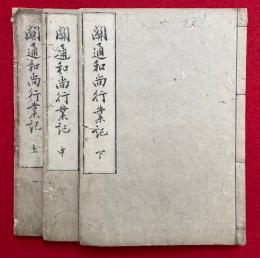 關通和尚行業記 下
關通和尚行業記 中
關通和尚行業記 上